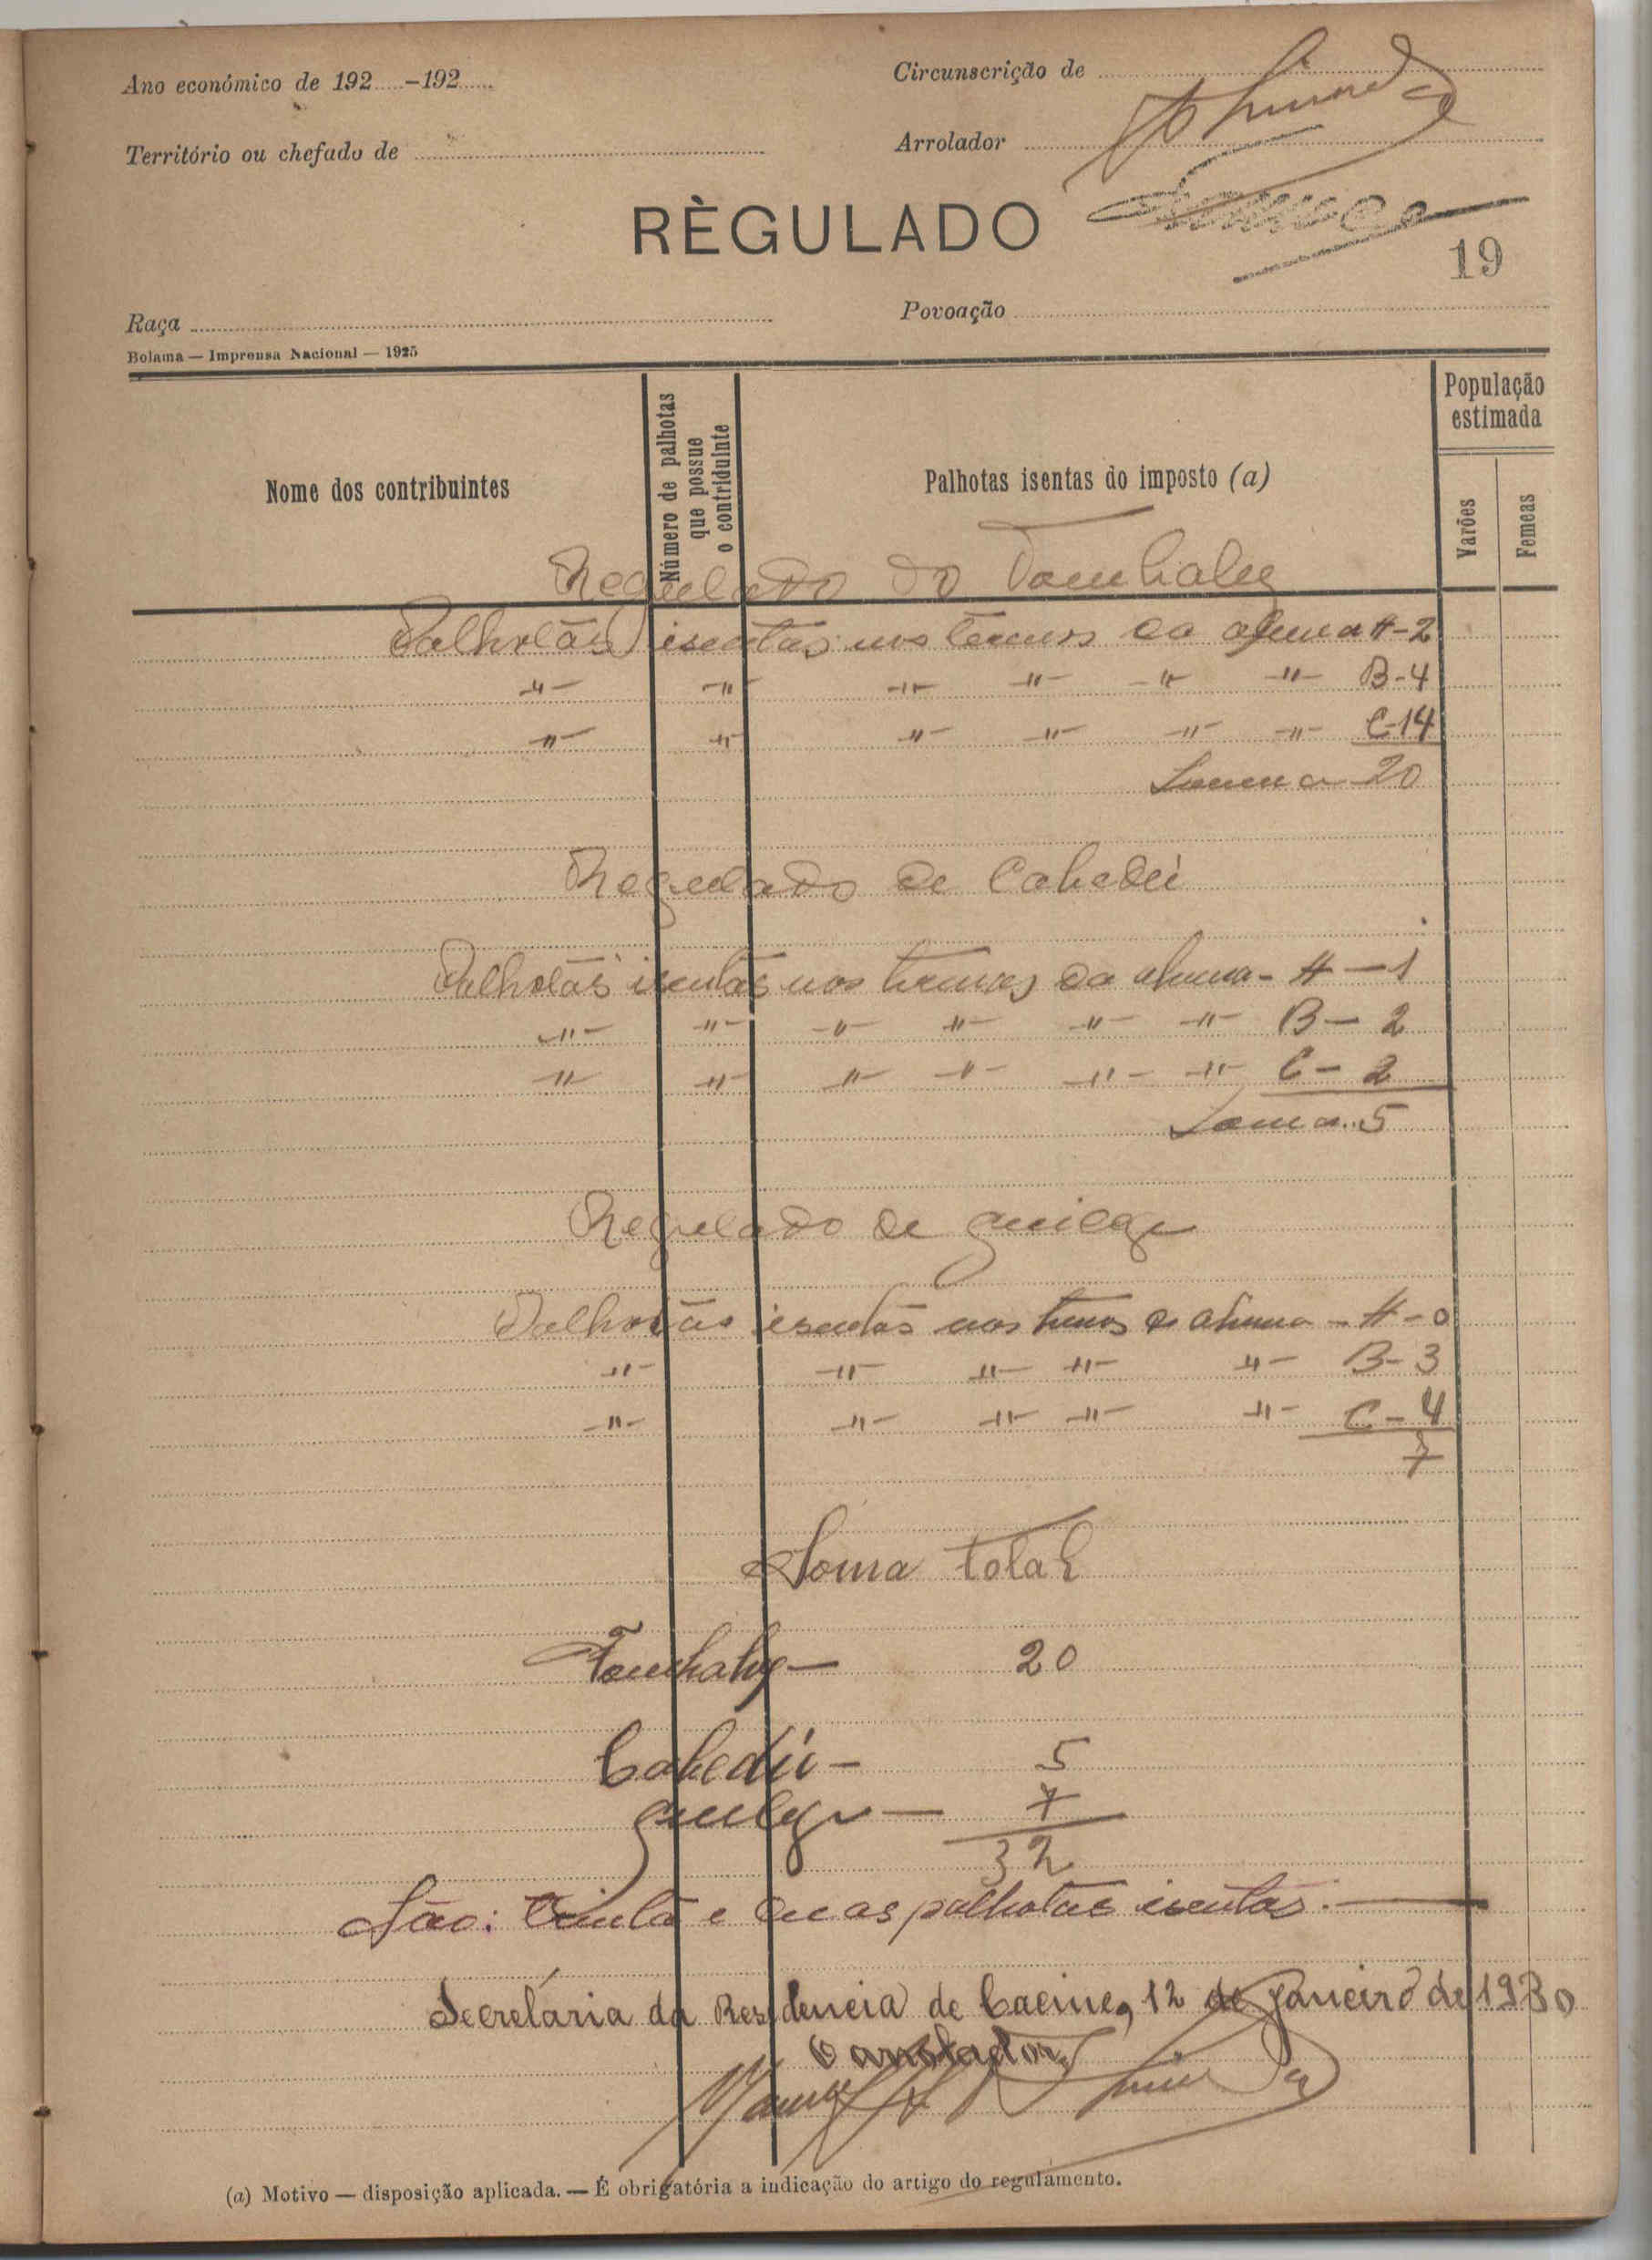 Ano económico de 192.....-192.....
Circunscrição de
Território ou chefado de
Arrolador
RÈGULADO
19
Raça
Povoação
Bolama — Imprensa Nacional — 1925
Nome dos contribuintes
Número de palhotas que possue o contriduinte
Palhotas isentas do imposto (a)
População estimada
Varões
Femeas
Regulado do
Palhotas isentas nos termos da alinea A-2
-"- -"- -"- -"- -"- -"- B-4
-"- -"- -"- -"- -"- -"- C-14
Somma-20
Regulado de Cabedú
Palhotas isentas nos termos da alinea - A-1
-"- -"- -"- -"- -"- -"- B-2
-"- -"- -"- -"- -"- -"- C-2
Soma..5
Regulado de Guilege
Palhotas isentas nos termos da alinea - A-0
-"- -"- -"- -"- -"- B-3
-"- -"- -"- -"- -"- C-4
7
Soma total
20
Cabedú- 5
Guilege- 7
32
São: trinta e duas palhotas isentas.
Secretária da Residencia de Cacine, 12 de Janeiro de 1930
(a) Motivo — disposição aplicada. — É obrigatória a indicação do artigo do regulamento.